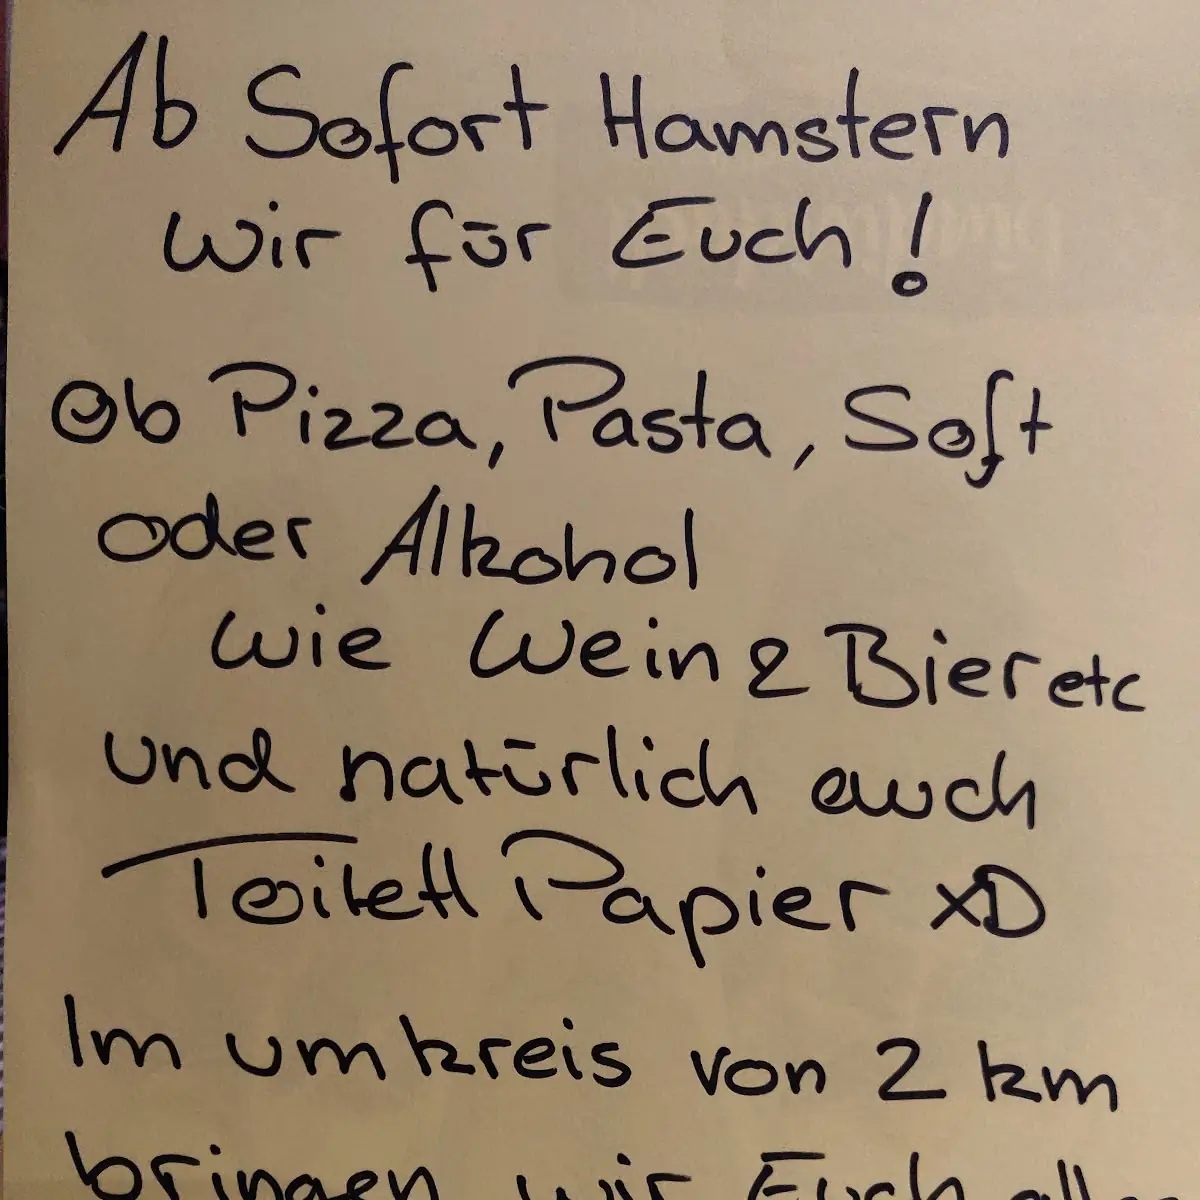 Ab Sofort Hamstern
wir für Euch!
Ob Pizza, Pasta, Soft
oder Alkohol
wie Wein & Bier etc
und natürlich auch
Toilett Papier XD
Im umkreis von 2 km
bringen wir Euch